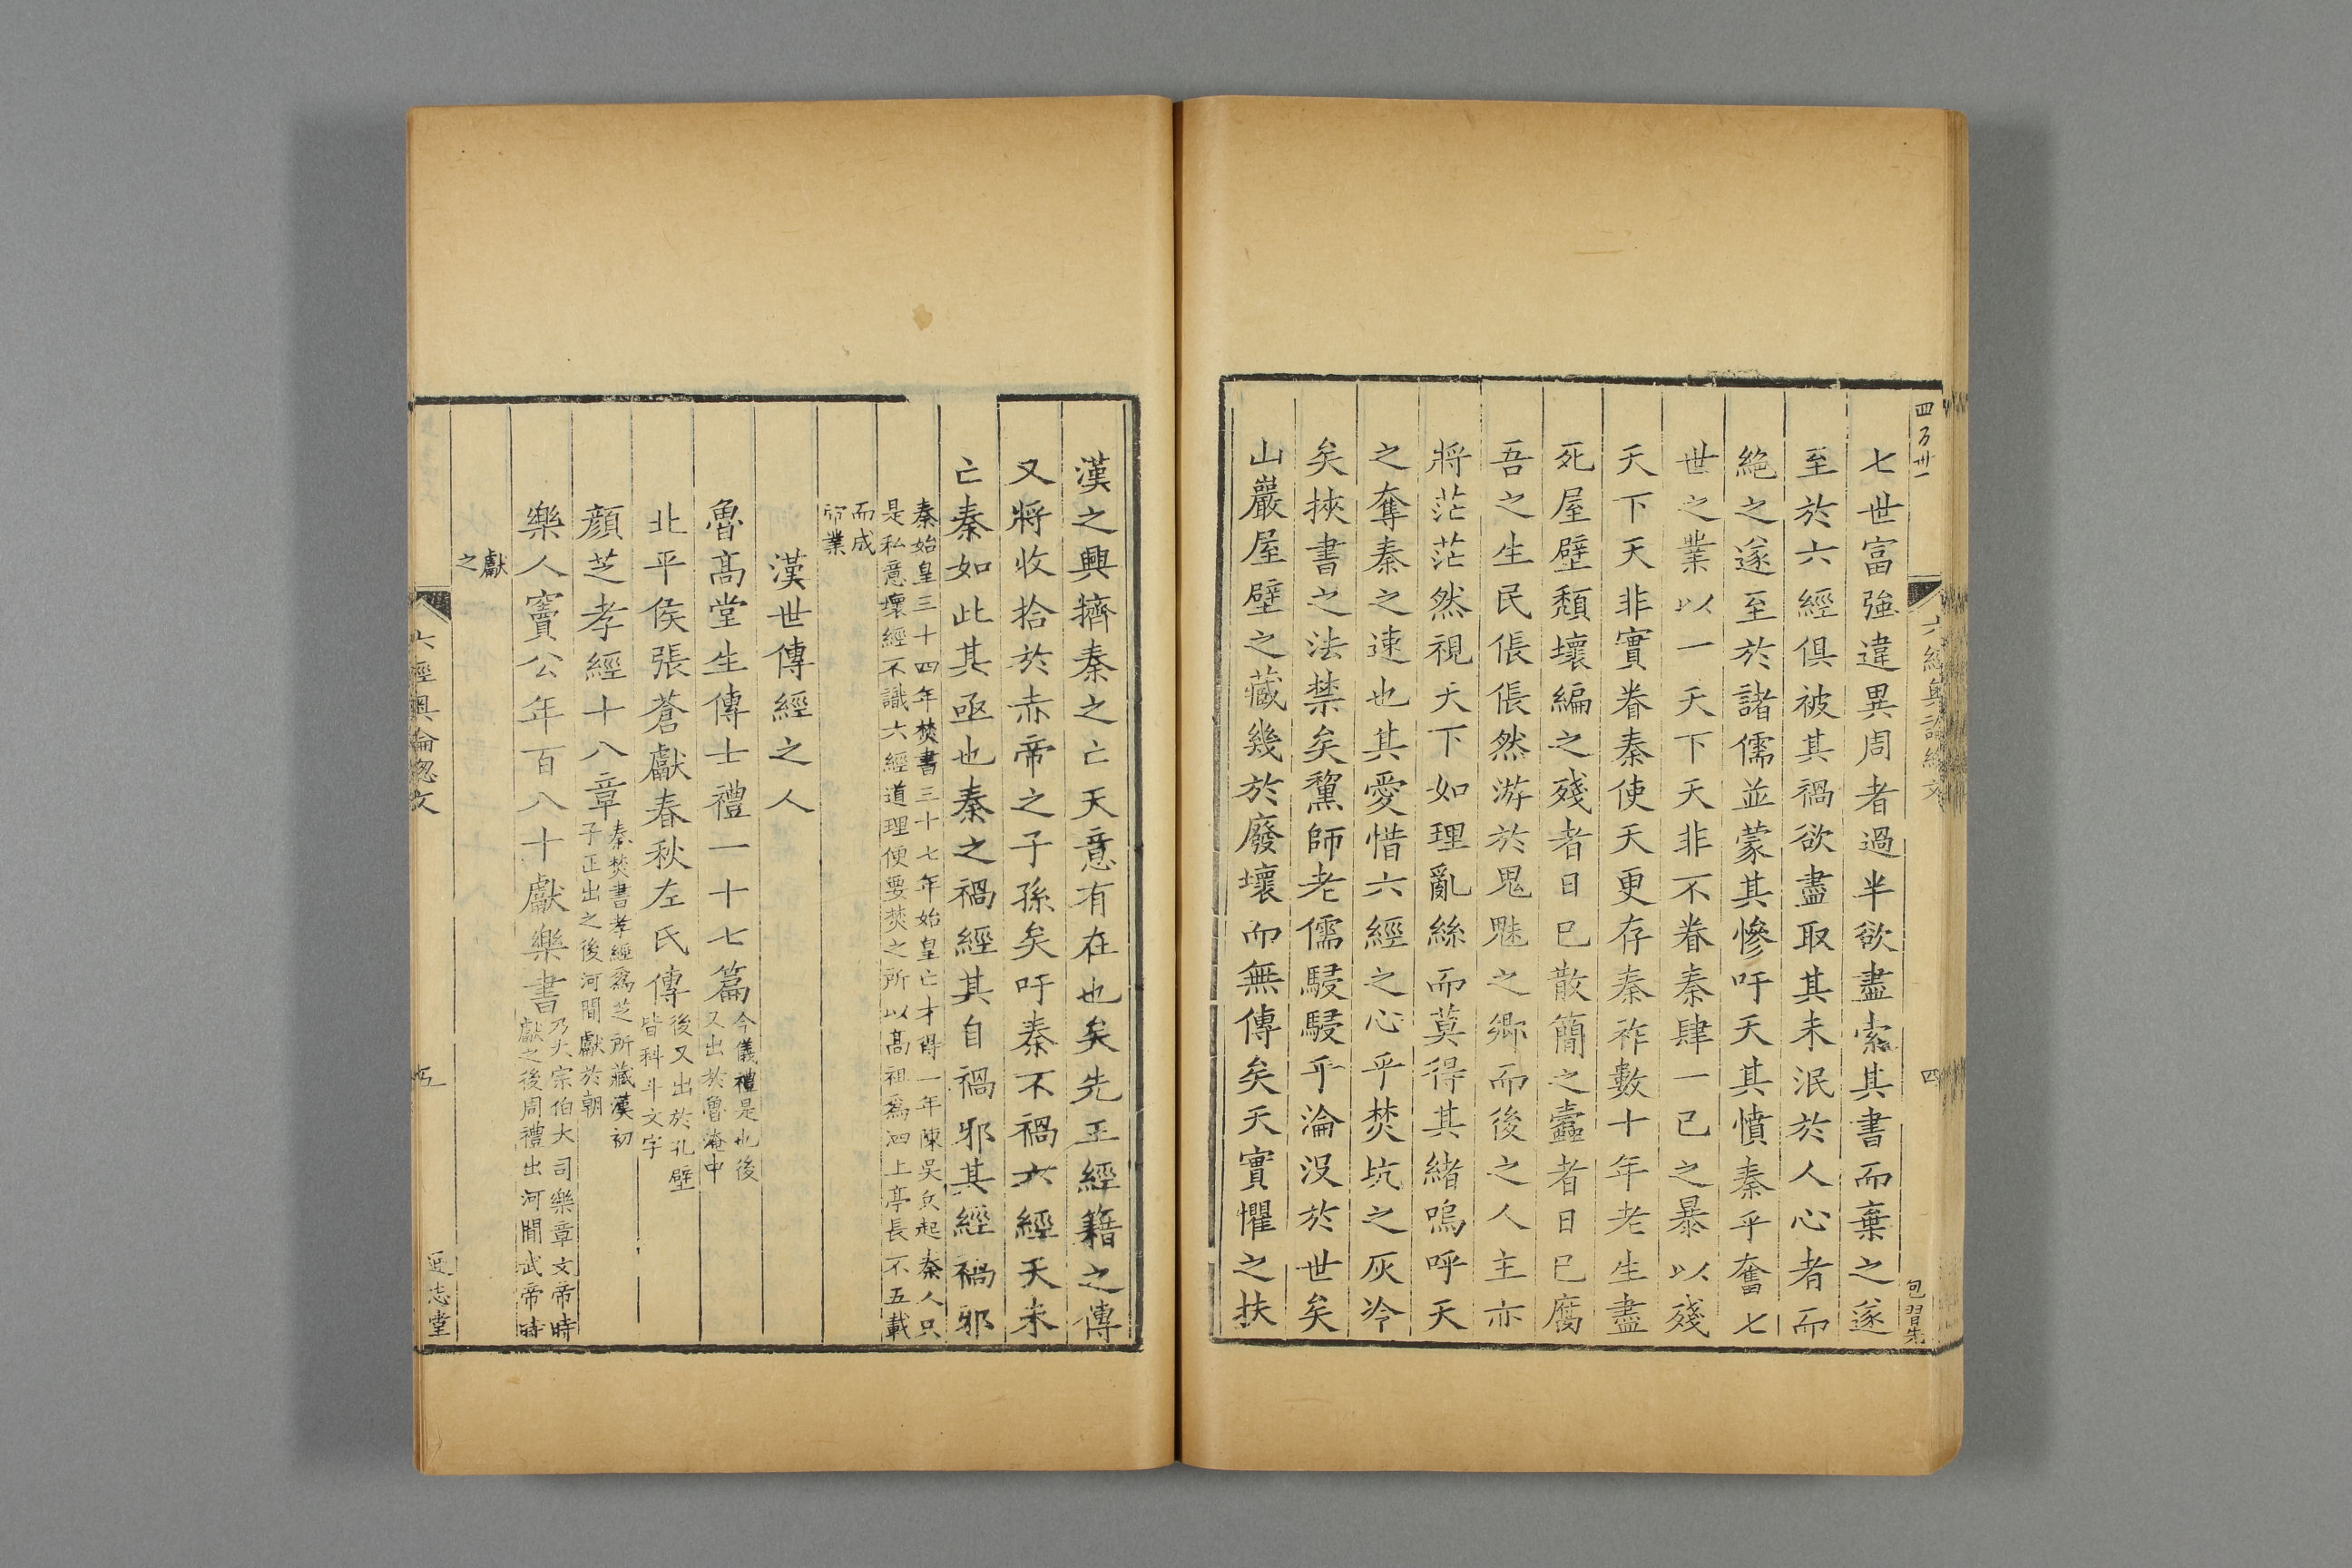 四百卅一
六經奥論總文
四
七世富強違異周者過半欲盡索其書而棄之遂
至於六經俱被其禍欲盡取其未泯於人心者而
絕之遂至於諸儒並蒙其慘吁天其憤秦乎奮七
世之業以一天下天非不眷秦肆一己之暴以殘
天下天非實眷秦使天更存秦祚數十年老生盡
死屋壁頹壞編之殘者日已散簡之蠹者日已腐
吾之生民倀倀然游於鬼魅之鄉而後之人主亦
將茫茫然視天下如理亂絲而莫得其緒嗚呼天
之奪秦之速也其愛惜六經之心乎焚坑之灰冷
矣挾書之法禁矣黧師老儒駸駸乎淪没於世矣
山巖屋壁之藏幾於廢壞而無傳矣天實懼之扶
漢之興擠秦之亡天意有在也矣先王經籍之傳
又將收拾於赤帝之子孫矣吁秦不禍六經天未
亡秦如此其亟也秦之禍經其自禍邪其經禍邪
秦始皇三十四年焚書三十七年始皇亡才得一年陳吳兵起秦人只
是私意壞經不識六經道理便要焚之所以髙祖爲泗上亭長不五載
而成
帝業
漢世傳經之人
魯髙堂生傳士禮一十七篇
今儀禮是也後
又出於魯淹中
北平侯張蒼獻春秋左氏傳
後又出於孔壁
皆科斗文字
顔芝孝經十八章
秦焚書孝經爲芝所藏漢初
子正出之後河間獻於朝
樂人竇公年百八十獻樂書
乃大宗伯大司樂章文帝時
獻之後周禮出河間武帝時
獻
之
六經奥論總文
五
通志堂